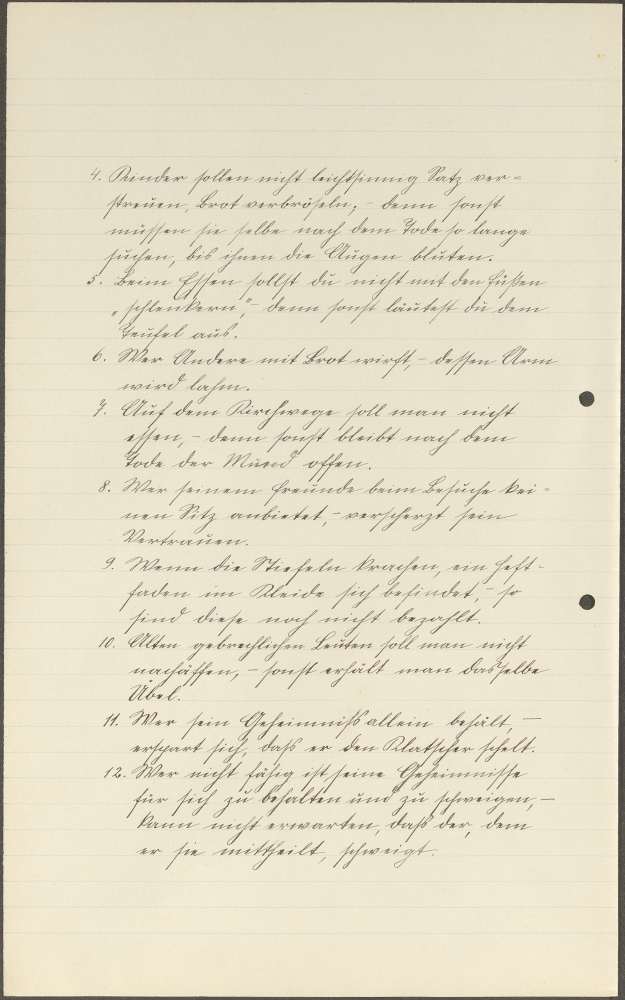 4. Kinder sollen nicht leichtsinnig Salz ver-
streuen, Brot verbröseln; - denn sonst
müssen sie selbe nach dem Tode so lange
suchen, bis ihnen die Augen bluten.
5. Beim Essen sollst du nicht mit den Füßen
„schlenkern", - denn sonst läutest du dem
Teufel aus.
6. Wer Andere mit Brot wirft, - dessen Arm
wird lahm.
7. Auf dem Kirchwege soll man nicht
essen, - denn sonst bleibt nach dem
Tode der Mund offen.
8. Wer seinem Freunde beim Besuche kei-
nen Sitz anbietet, - verscherzt sein
Vertrauen.
9. Wenn die Stiefeln krachen, ein Heft-
faden im Kleide sich befindet, - so
sind diese noch nicht bezahlt.
10. Alten gebrechlichen Leuten soll man nicht
nachäffen, - sonst erhält man dasselbe
Übel.
11. Wer sein Geheimniß allein behält, —
erspart sich, daß er den Klatscher schelt.
12. Wer nicht fähig ist seine Geheimnisse
für sich zu behalten und zu schweigen, —
kann nicht erwarten, daß der, dem
er sie mittheilt, schweigt.